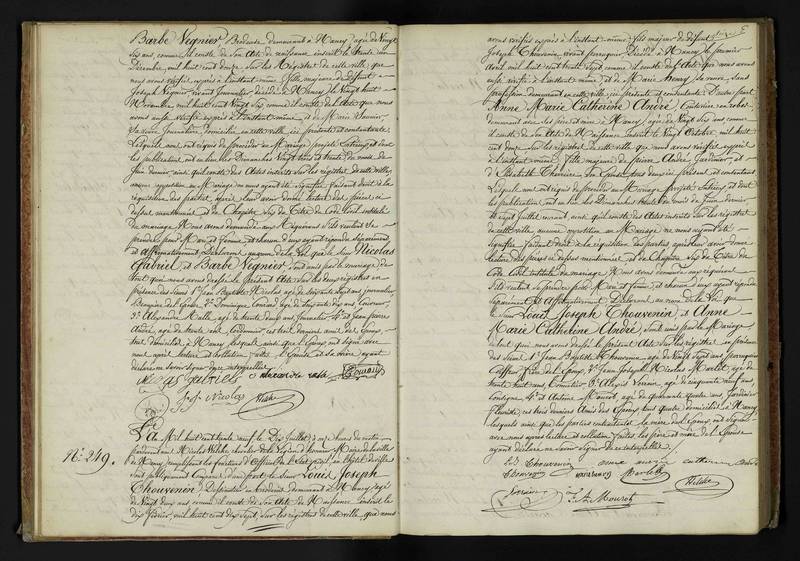 Barbe Vegnier Brodeuse demeurant à Nancy agée de Vingt
Six ans comme il conste de son Acte de naissance inscrit le trente un
Décembre, mil huit cent douze, sur les Registres de cette ville que
nous avons vérifié exprès à l'instant même, fille majeure de défunt
Joseph Vegnier vivant Journalier décédé à Nancy le Vingt huit
Novembre, mil huit cent Vingt six comme il conste de l'Acte que nous
avons aussi vérifié exprès à l'instant même, et de Marie
Sa veuve Journalière, domiciliée en cette ville, ci présente et consentante
Lesquels nous ont requis de procéder au Mariage projeté entr'eux, et dont
les publications ont eu lieu les Dimanches Vingt trois et trente, du mois de
Juin dernier, ainsi qu'il conste des Actes inscrits sur les registres de cette ville,
aucune opposition au Mariage ne nous ayant été signifiée, faisant droit à la
réquisition des parties, après leur avoir donné lecture des pièces ci
dessus mentionnées et du Chapitre Six du Titre du Code Civil intitulé
du mariage, Nous avons demandé aux Requérans s'ils veulent se
prendre pour Mari et Femme, et chacun d'eux ayant répondu séparément
et affirmativement Déclarons au nom de la Loi que le Sieur Nicolas
Gabriel, et Barbe Vegnier sont unis par le mariage de
tout quoi nous avons dressé le présent Acte sur les deux registres en
présence des Sieurs 1° Jean Baptiste Nicolas agé de soixante sept ans journalier
2° Dominique
3° Alexandre Malh, agé de trente deux ans, Journalier, 4° et Jean pierre
André, agé de trente ans, Cordonnier, ces trois derniers amis des Epoux,
tous domiciliés à Nancy, lesquels ainsi que l'époux ont signé avec
nous après lecture et collation faites, l'Epouse et sa mère ayant
déclaré ne savoir signer de ce interpellées
nicolas gabriel
Jos. Nicolas
N°. 249.
L'a Mil huit cent trente neuf le Dix Juillet, à onze heures du matin
pardevant nous Nicolas chevalier de la Légion d'honneur Maire de la ville
de Nancy, remplissant les fonctions d'Officier de l'Etat civil à l'hôtel de ville
Sont publiquement comparus d'une part le Sieur Louis Joseph
Thouvenin, demeurant à Nancy, agé
de Vingt deux ans comme il conste de son Acte de Naissance inscrit le
dix Février, mil huit cent dix Sept, sur les registres de cette ville, que nous
avons vérifié exprès à l'instant même, fils majeur de défunt
Joseph Thouvenin vivant perruquier Décédé à Nancy le premier
Avril mil huit cent trente sept comme il conste de l'Acte que nous avons
aussi vérifié à l'instant même, et de Marie Henry sa veuve, sans
profession demeurant en cette ville, ci présente et consentante : D'autre part
Anne Marie Catherine André, Couturière en robes
demeurant avec ses père et mère à Nancy, agée de Vingt six ans comme
il conste de son Acte de Naissance inscrit le Vingt Octobre, mil huit
cent douze sur les registres de cette ville que nous avons vérifié exprès
à l'instant même, fille majeure de pierre André Jardinier, et
d'Elisabeth son Epouse, tous deux ici présens et consentans
Lesquels nous ont requis de procéder au Mariage projeté entr'eux, et dont
les publications ont eu lieu les Dimanches trente du mois de Juin dernier,
et sept Juillet courant, ainsi qu'il conste des Actes inscrits sur les registres
de cette ville, aucune opposition au Mariage ne nous ayant été
signifiée, faisant droit à la réquisition des parties, après leur avoir donné
lecture des pièces ci dessus mentionnées, et du Chapitre Six du Titre du
Code Civil intitulé du mariage, Nous avons demandé aux requérans
s'ils veulent se prendre pour Mari et femme, et chacun d'eux ayant répondu
séparément et affirmativement, Déclarons au nom de la Loi que
le Sieur Louis Joseph Thouvenin, et Anne
Marie Catherine André, sont unis par le Mariage
de tout quoi nous avons dressé le présent Acte sur les registres, en présence
des Sieurs 1° Jean Baptiste Thouvenin agé de Vingt sept ans, perruquier
frère de l'époux, 2° Jean Joseph Nicolas Marlet, agé de
trente huit ans, 3° Aloyse Voirin, agé de cinquante neuf ans,
4° et Antoine Mourot, agé de quarante quatre ans, Jardinier
fleuriste, ces trois derniers Amis des Epoux, tous quatre domiciliés à Nancy,
lesquels ainsi que les parties contractantes la mère de l'Epoux ont signé
avec nous après lecture et collation faites, les père et mère de l'Epouse
ayant déclaré ne savoir signer de ce interpellés
J B Thouvenin
anne marie catherine andré
Thouvenin
Marlet
Voirin
J. A. Mourot